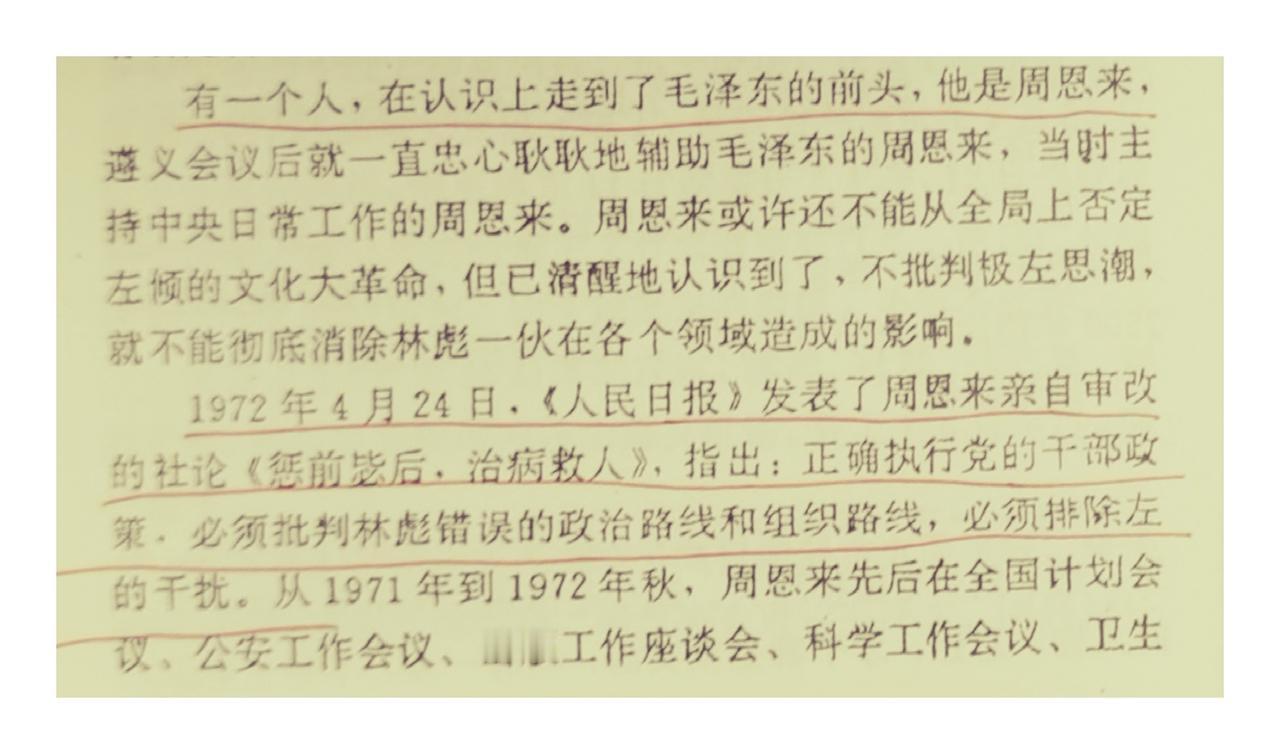 有一个人，在认识上走到了毛泽东的前头，他是周恩来，
遵义会议后就一直忠心耿耿地辅助毛泽东的周恩来，当时主
持中央日常工作的周恩来。周恩来或许还不能从全局上否定
左倾的文化大革命，但已清醒地认识到了，不批判极左思潮，
就不能彻底消除林彪一伙在各个领域造成的影响。
1972年4月24日，《人民日报》发表了周恩来亲自审改
的社论《惩前毖后，治病救人》，指出：正确执行党的干部政
策，必须批判林彪错误的政治路线和组织路线，必须排除左
的干扰。从1971年到1972年秋，周恩来先后在全国计划会
议、公安工作会议、工作座谈会、科学工作会议、卫生